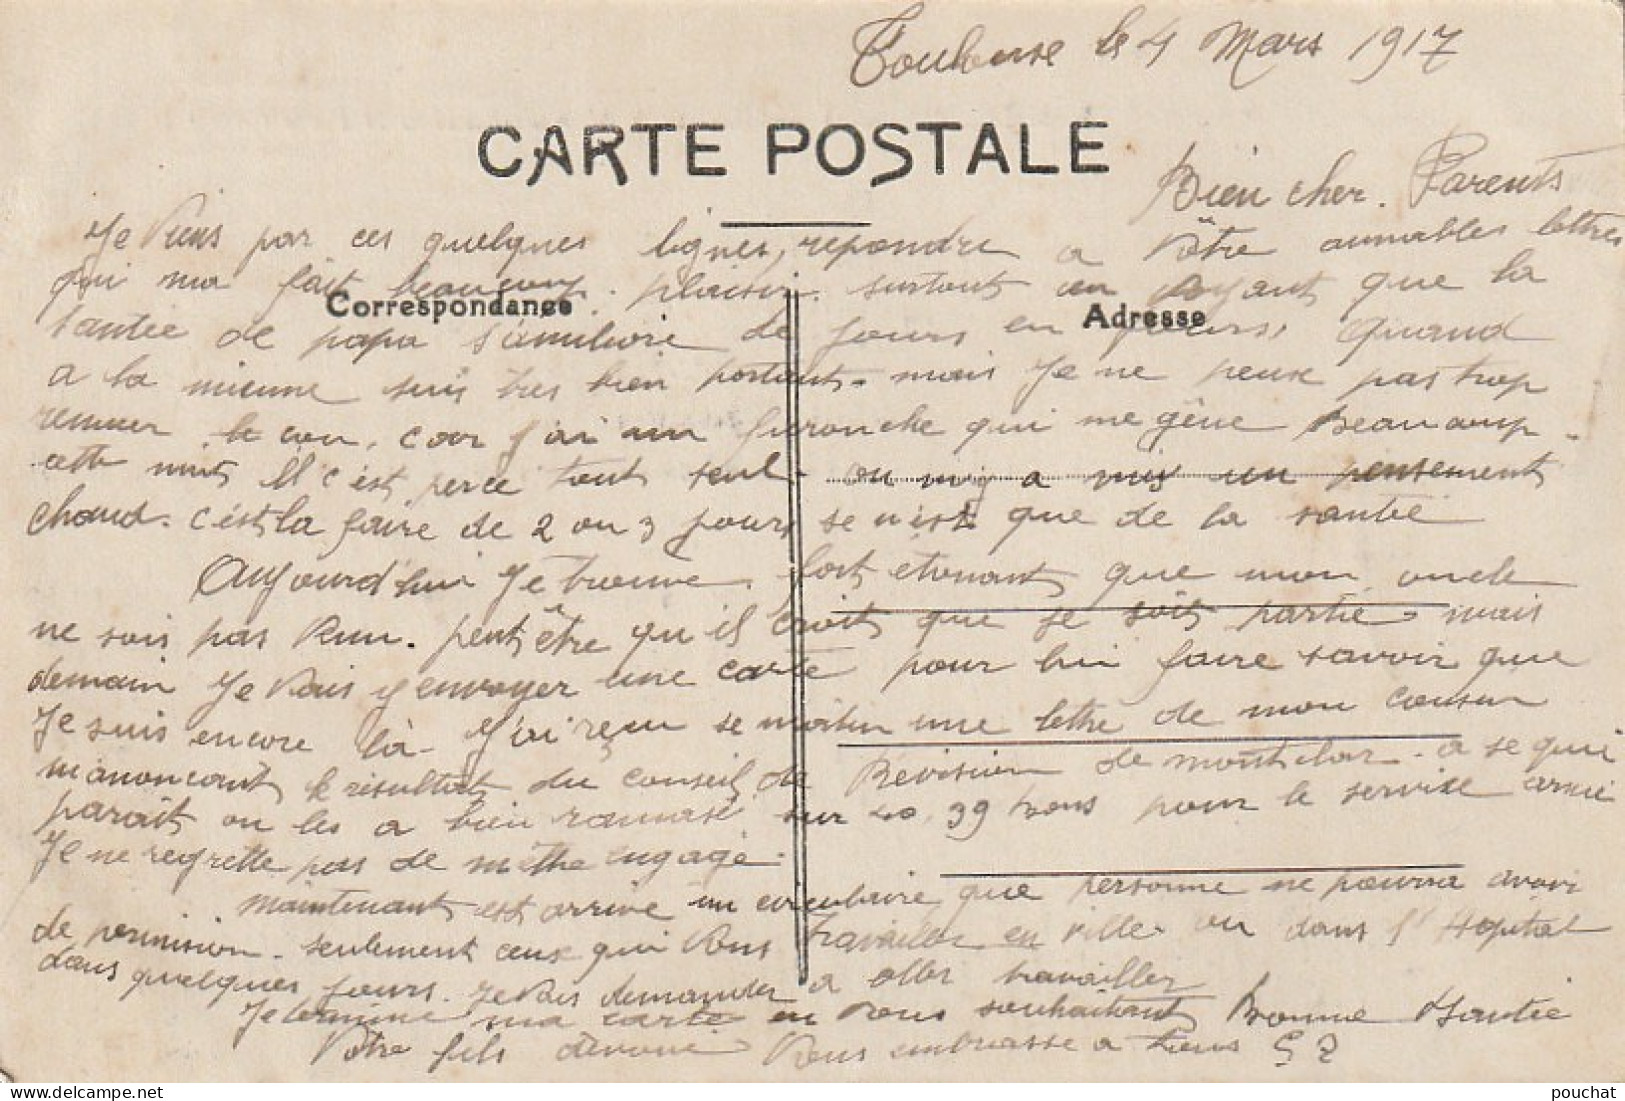 Toulouse le 4 Mars 1917
CARTE POSTALE
Bien cher. Parents
Je Viens par ces quelques lignes, repondre a Vôtre aumables lettres
qui ma fait beaucoup. plaisir. surtout en Voyant que la
Correspondance
Adresse
santée de papa s'amiliore de jours en jours, Quand
a la mienne suis tres bien portant. mais Je ne peux pas trop
remuer le cou, car j'ai un furoncle qui me gêne Beaucoup.
cette nuit Il c'est perce tout seul. on m'y a mis un pensement
chaud. c'est la faire de 2 ou 3 jours se n'est que de la santée
Aujourd'hui Je trouve fort étonant que mon oncle
ne sois pas Venu. peut être qu'il croit que je sois partie. mais
demain Je Vais y envoyer une carte pour lui faire savoir que
Je suis encore là. J'ai reçu se matin une lettre de mon cousin
m'anoncant le résultat du Conseil de Révision de Montclar. a se qui
parait on les a bien ramasé sur 40. 39 bons pour le service armé
Je ne regrette pas de m'ettre engagé.
Maintenant est arrivé un circulaire que personne ne pourra avoir
de permision. seulement ceux qui Vons travailler en Ville ou dans l'Hopital
dans quelques jours. Je Vais demander a aller travailler
Je termine ma carte en Vous souhaitant Bonne Santée
Vôtre fils dévoué Vous embrasse a tous
pouchat